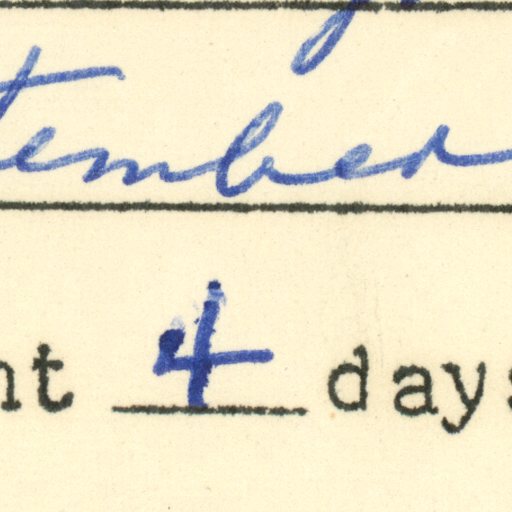 tember
nt 4 days